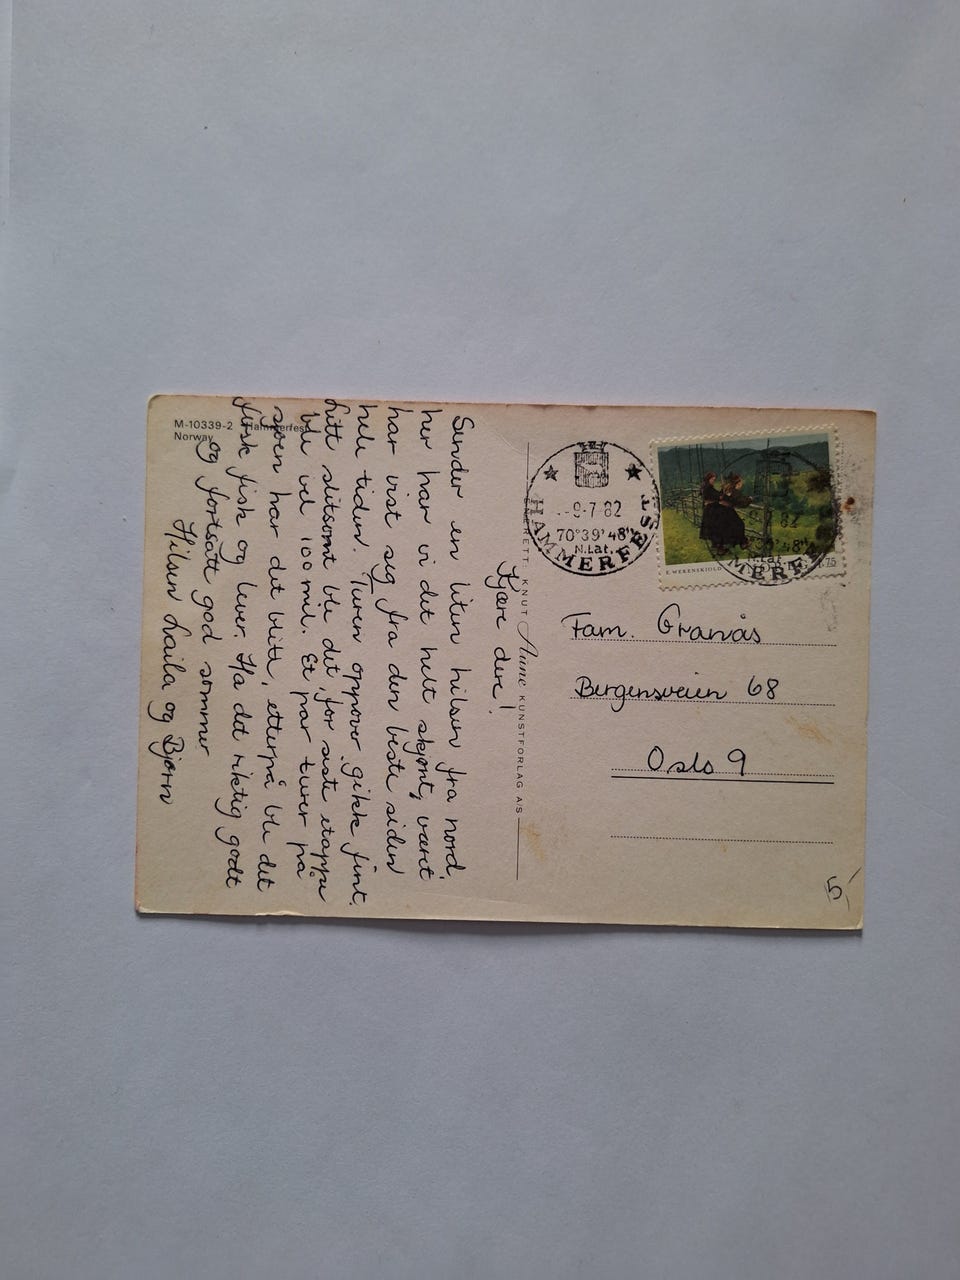 M-10339-2 Hammerfest
Norway
Kjære dere!
Sender en liten hilsen fra nord,
her har vi det helt skjønt, været
har vist seg fra den beste siden
hele tiden. Turen oppover gikk fint.
Litt slitsomt ble det, for siste etappe
ble vel 100 mil. Et par turer på
sjøen har det blitt, etterpå ble det
fersk fisk og lever. Ha det riktig godt
og fortsatt god sommer
Hilsen Laila og Bjørn
ENERETT: KNUT Aune KUNSTFORLAG A/S
-9-7-82
70°39'48"
N.Lat.
HAMMERFEST
E WERENSKIOLD
1,75
82
70°39'48"
N.Lat.
HAMMERFEST
Fam. Granås
Bergensveien 68
Oslo 9
5,-